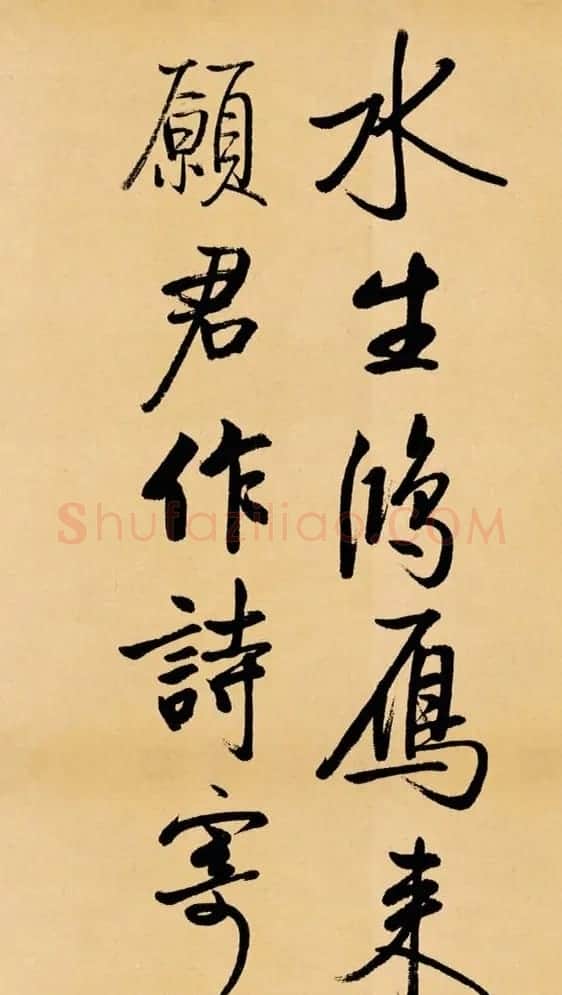 水生鴻鴈来
願君作詩寄
Shufaziliao.COM